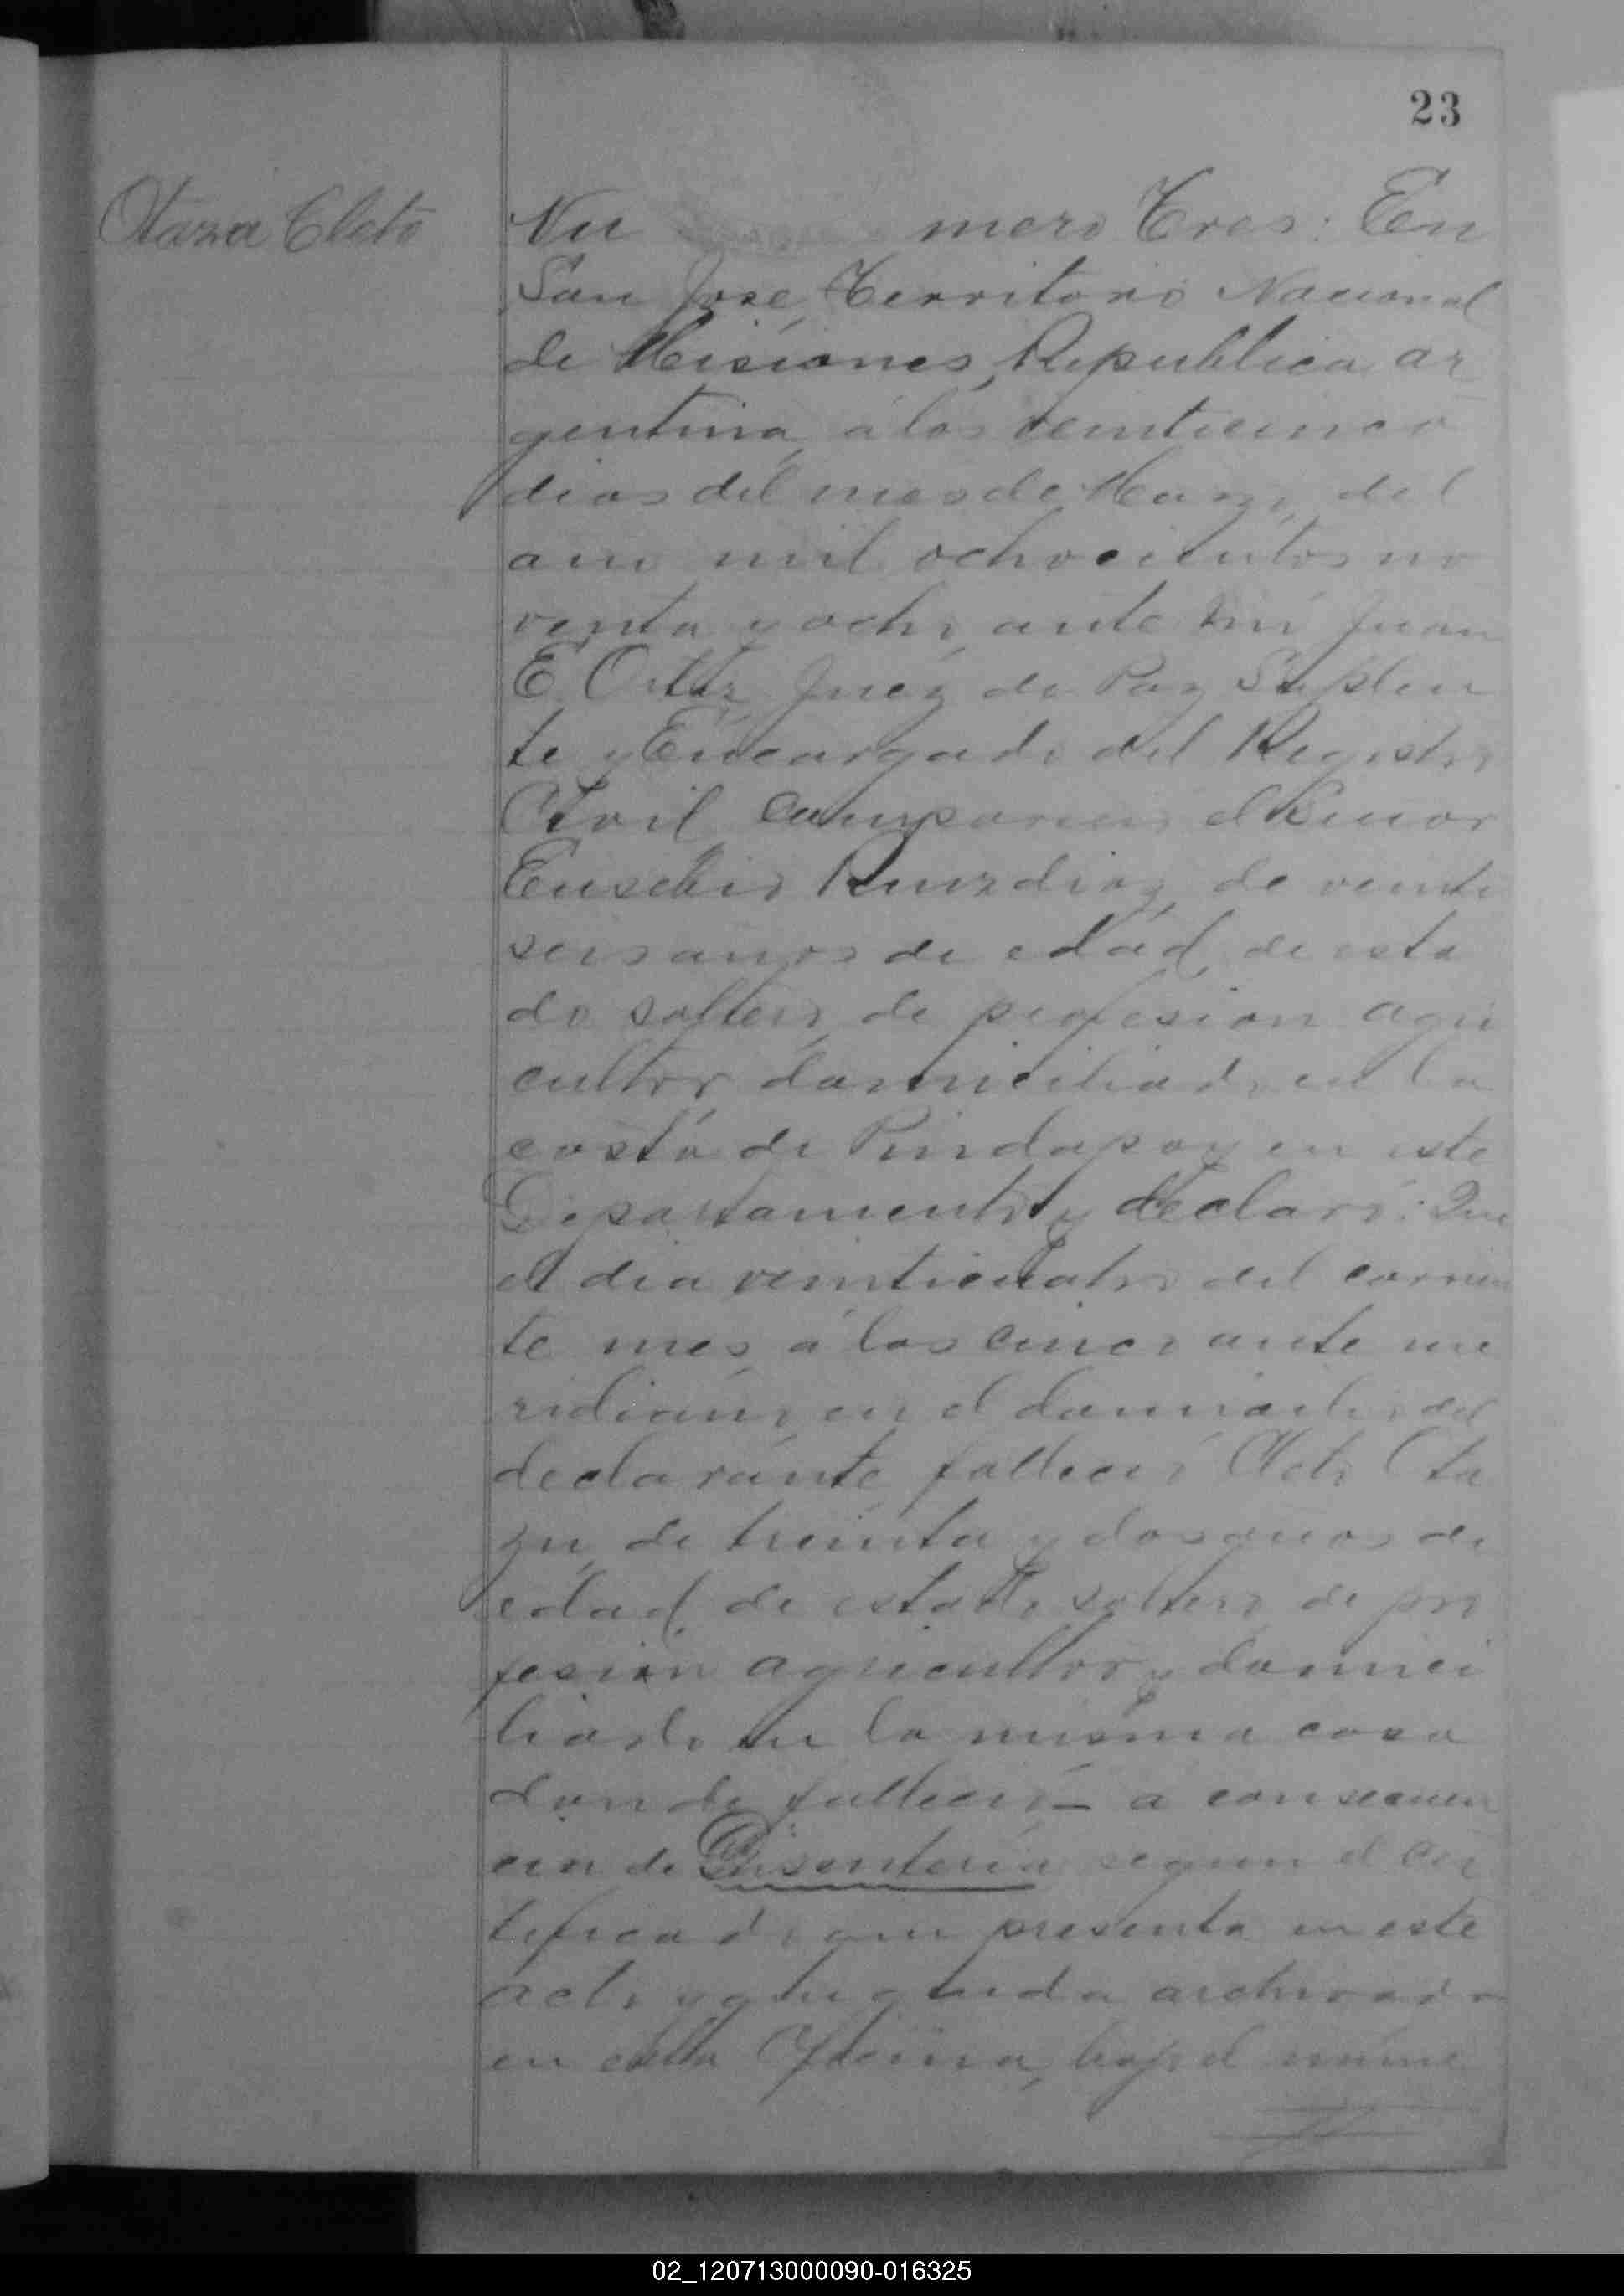 23
Otazu Cleto
Nu mero Tres: En
San José, Territorio Nacional
de Misiones, Republica ar
gentina, á los veinticinco
dias del mes de Marzo, del
año mil ochocientos no
venta y ocho, ante mi Juan
E. Ortiz, Juez de Paz Suplen
te y Encargado del Registro
Civil comparecio el Señor
Eusebio Ruizdiaz, de veinti
seis años de edad, de esta
do soltero, de profesion agri
cultor domiciliado en la
costa de Pindapoy en este
Departamento y declaró: Que
el dia veinticuatro del corrien
te mes, á las cinco ante me
ridiano, en el domicilio del
declarante, falleció Cleto Ota
zu, de treinta y dos años de
edad, de estado soltero, de pro
fesión agricultor y domici
liado en la misma casa
donde falleció á consecuen
cia de Disenteria segun el cer
tificado que presenta en este
acto y que queda archivado
en esta Oficina, bajo el núme
02_120713000090-016325